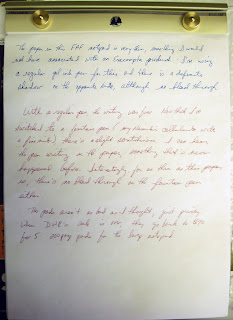 The paper in this FAF notepad is very thin, something I would
not have associated with an Exacompta product. I'm using
a regular gel ink pen for this and there is a definite
shadow on the opposite side, although no bleed through.
With a regular pen, the writing was fine. Now that I'm
switched to a fountain pen (my Namiki collection with
a fine nib) there's a slight scratchiness. I can hear
the pen writing on the paper, something that's never
happened before. Interestingly, for as thin as this paper
is, there's no bleed through on the fountain pen
either.
The pads aren't as bad as I thought, just pricey
when
is on, they go
for 5 pads for the large notepad.